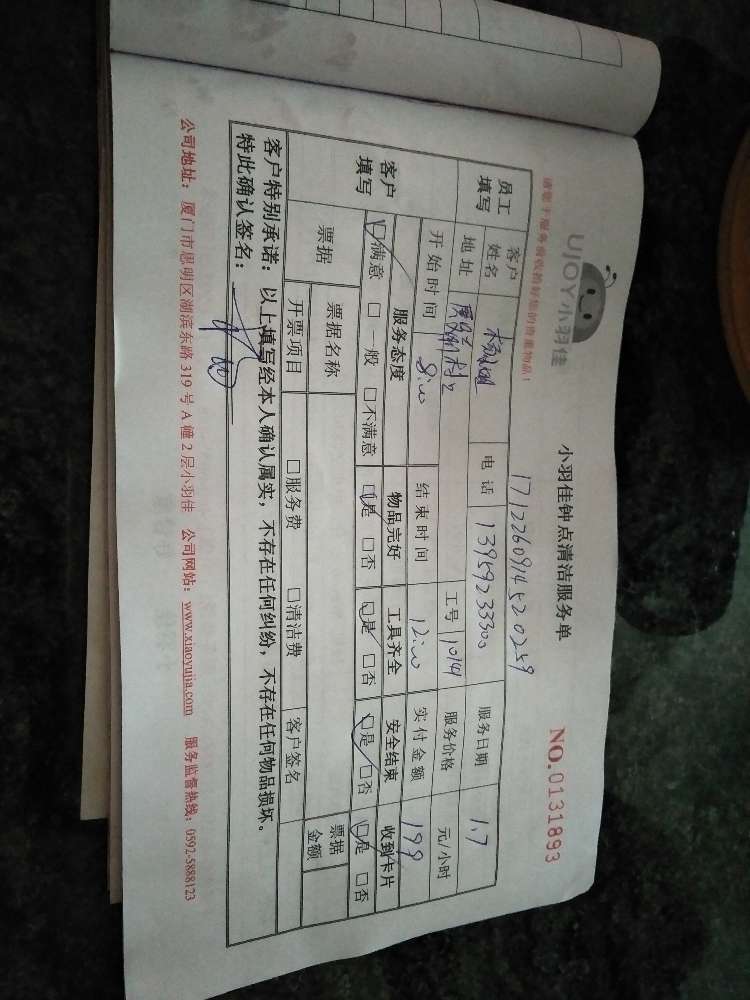 UJOY小羽佳
小羽佳钟点清洁服务单
NO.0131893
请您于服务前收拾好您的贵重物品!
1712260914520259
员工填写 客户姓名 电话 13959233300 服务日期 1.7
地址 工号 10141 服务价格 元/小时
开始时间 8:00 结束时间 12:00 实付金额 199
客户填写 服务态度 物品完好 工具齐全 安全结束 收到卡片
☑满意 □一般 □不满意 ☑是 □否 ☑是 □否 ☑是 □否 ☑是 □否
票据 票据名称 票据金额
开票项目 □服务费 □清洁费 客户签名
客户特别承诺:以上填写经本人确认属实,不存在任何纠纷,不存在任何物品损坏。
特此确认签名:
公司地址:厦门市思明区湖滨东路319号A幢2层小羽佳 公司网站:www.xiaoyujia.com 服务监督热线:0592-5888123